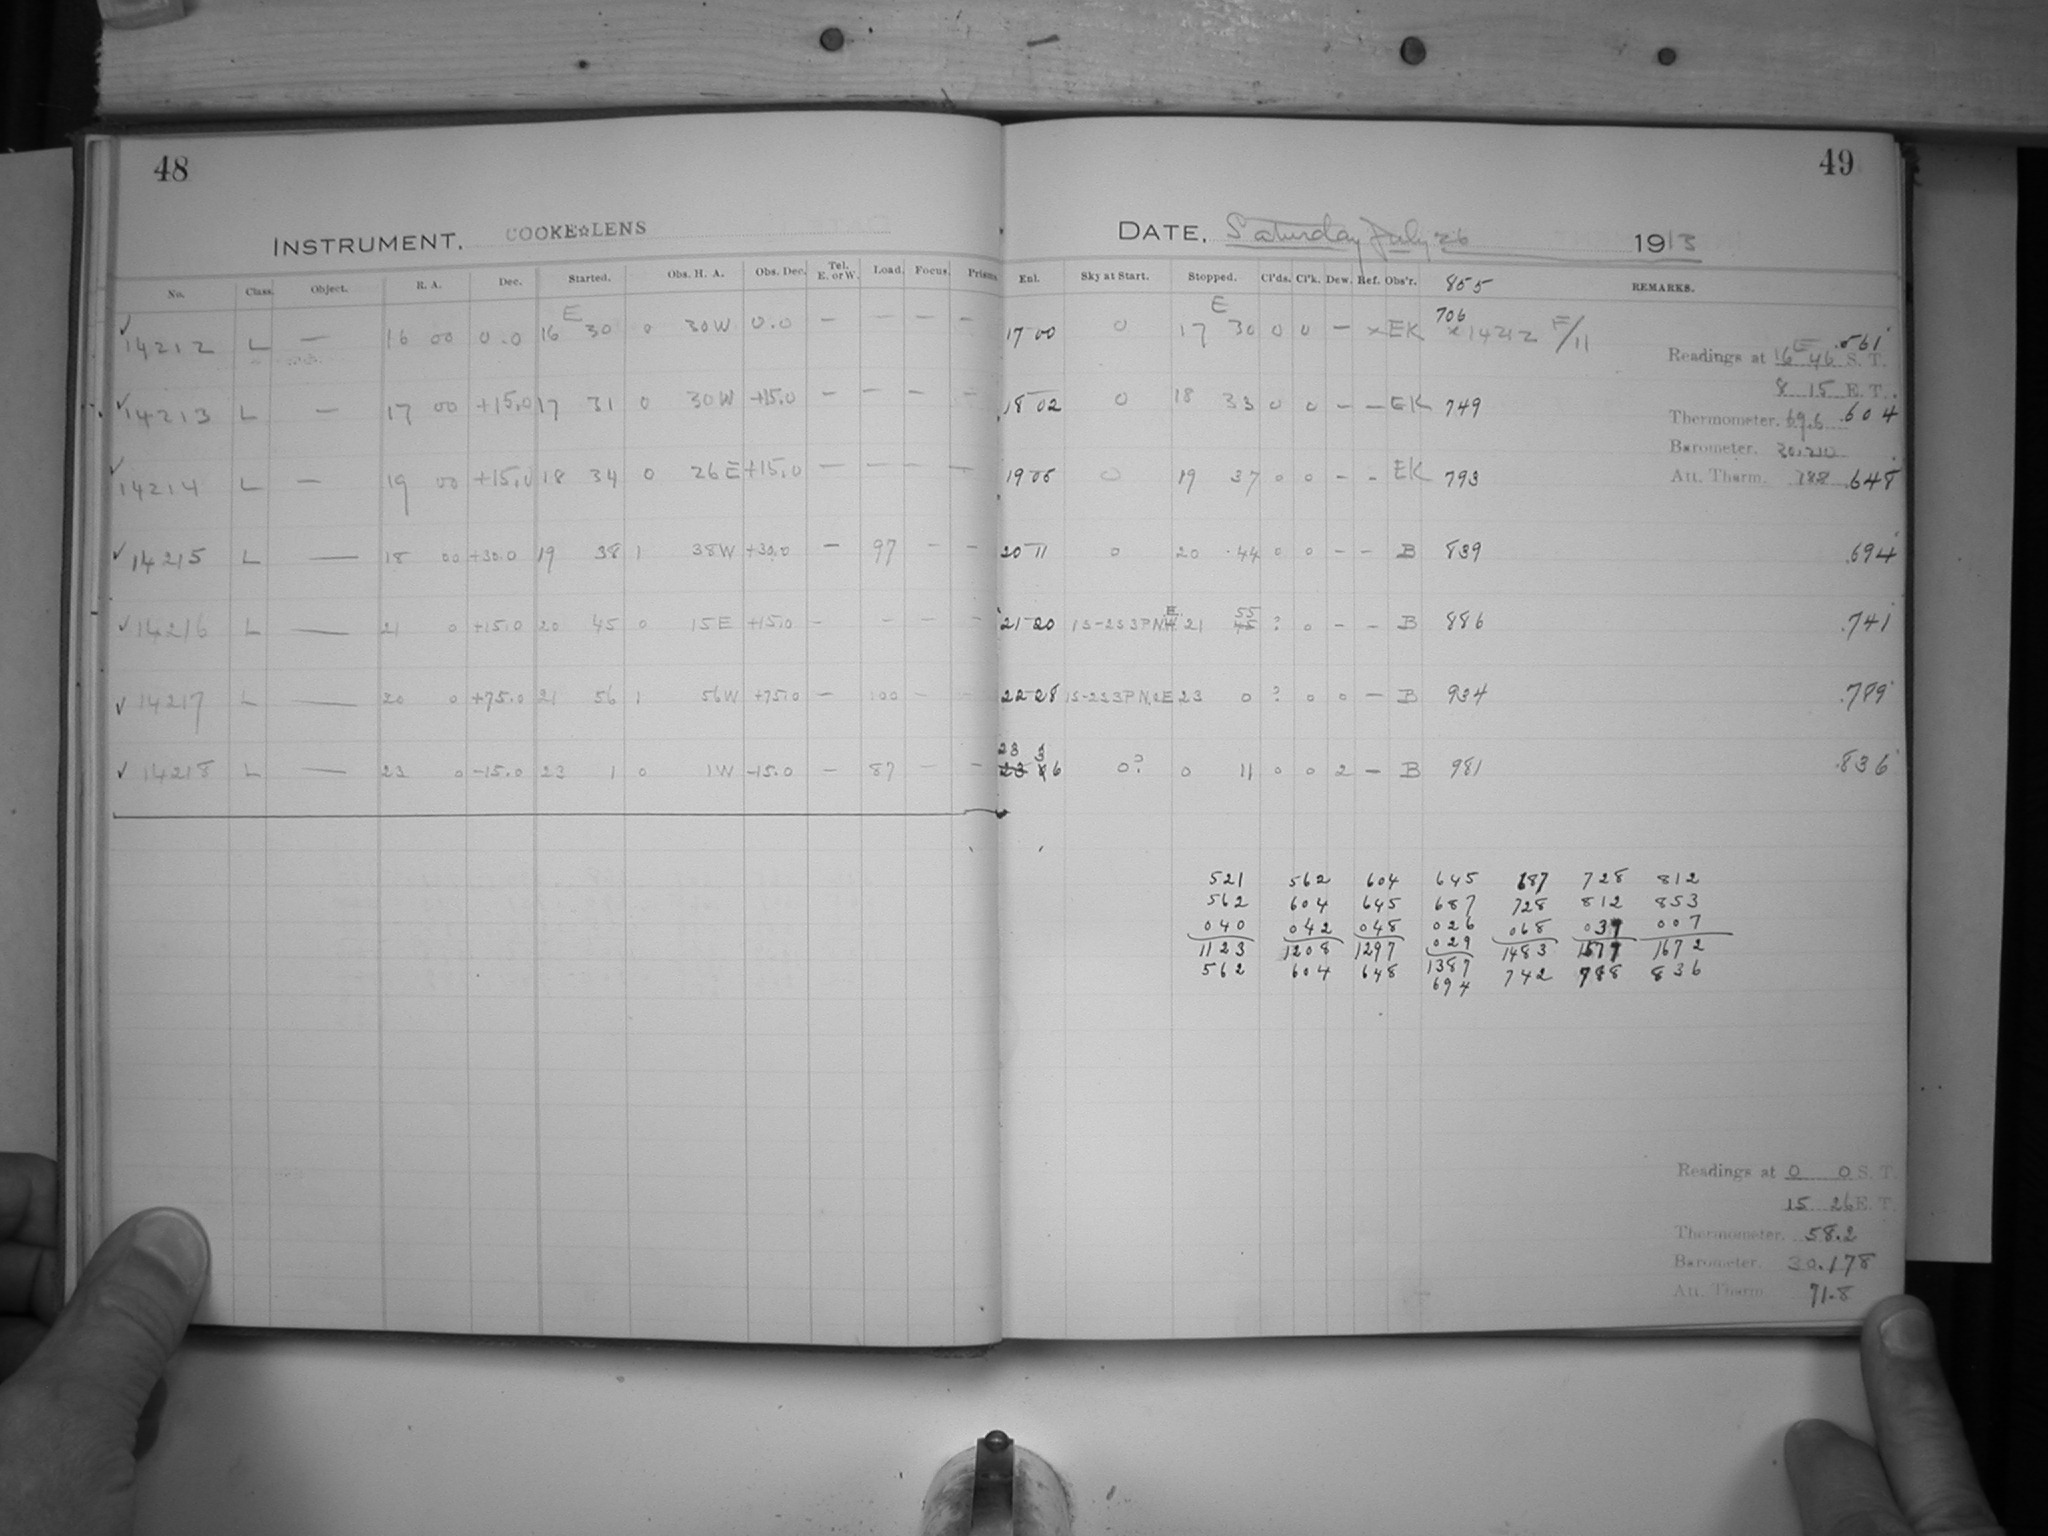 48
INSTRUMENT. COOKE☆LENS
No. Class. Object. R. A. Dec. Started. Obs. H. A. Obs. Dec. Tel. E. or W. Load. Focus. Prisms.
✓ 14212 L — 16 00 0.0 16 E 30 0 30W 0.0 — — — —
✓ 14213 L — 17 00 +15.0 17 31 0 30W +15.0 — — — —
✓ 14214 L — 19 00 +15.0 18 34 0 26E +15.0 — — — —
✓ 14215 L — 18 00 +30.0 19 38 1 38W +30.0 — 97 — —
✓ 14216 L — 21 0 +15.0 20 45 0 15E +15.0 - - - -
✓ 14217 L — 20 0 +75.0 21 56 1 56W +75.0 — 100 — —
✓ 14218 L — 23 0 -15.0 23 1 0 1W -15.0 — 87 — —
49
DATE. Saturday July 26 1913
Enl. Sky at Start. Stopped. Cl'ds. Cl'k. Dew. Ref. Obs'r. 855 REMARKS.
17 00 0 17 E 30 0 0 — × EK 706 × 14212 F/11 .561
18 02 0 18 33 0 0 — — EK 749 .604
19 05 0 19 37 0 0 — - EK 793 .648
20 11 0 20 44 0 0 - - B 839 .694
21 20 15-253PN E. 21 55 ? 0 - - B 886 .741
22 28 15-253PN,2E 23 0 ? 0 0 — B 934 .789
23 36 0? 0 11 0 0 2 — B 981 .836
Readings at 16 E 46 S. T.
8 15 E. T.
Thermometer. 69.6
Barometer. 30.210
Att. Tharm. 788
521 562 604 645 687 728 812
562 604 645 687 728 812 853
040 042 048 026 068 037 007
029
1123 1208 1297 1387 1483 1577 1672
562 604 648 694 742 788 836
Readings at 0 0 S. T.
15 26 E. T.
Thermometer. 58.2
Barometer. 30.178
Att. Tharm 71.8